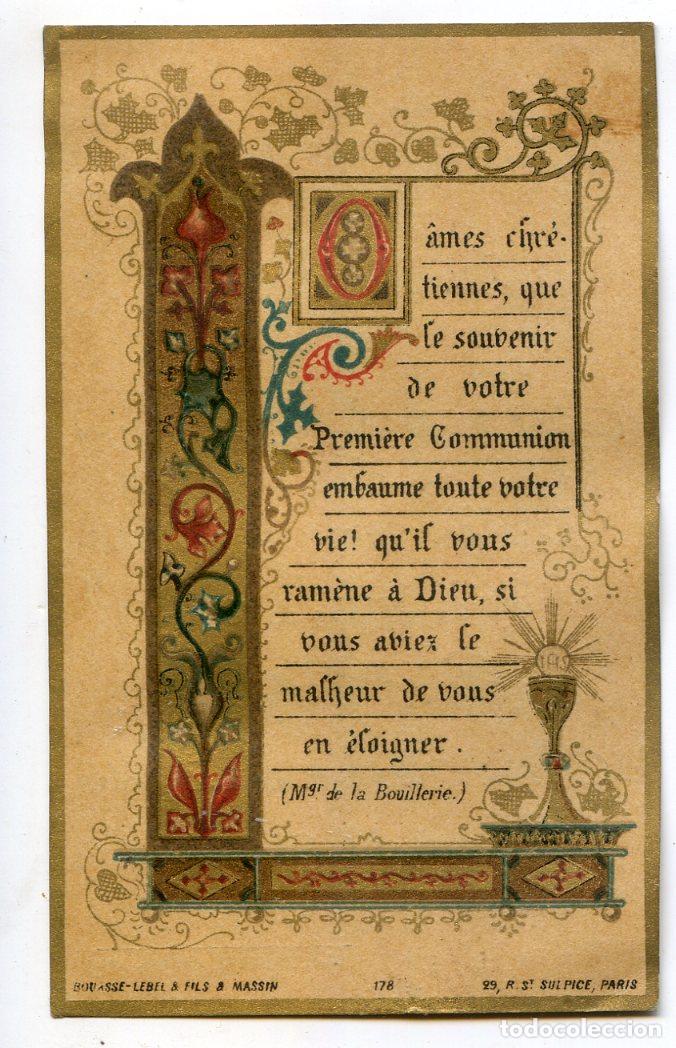 O âmes chré-
tiennes, que
le souvenir
de votre
Première Communion
embaume toute votre
vie! qu'il vous
ramène à Dieu, si
vous aviez le
malheur de vous
en éloigner.
(Mgr de la Bouillerie.)
IHS
BOUASSE-LEBEL & FILS & MASSIN 178 29, R. ST SULPICE, PARIS
todocoleccion